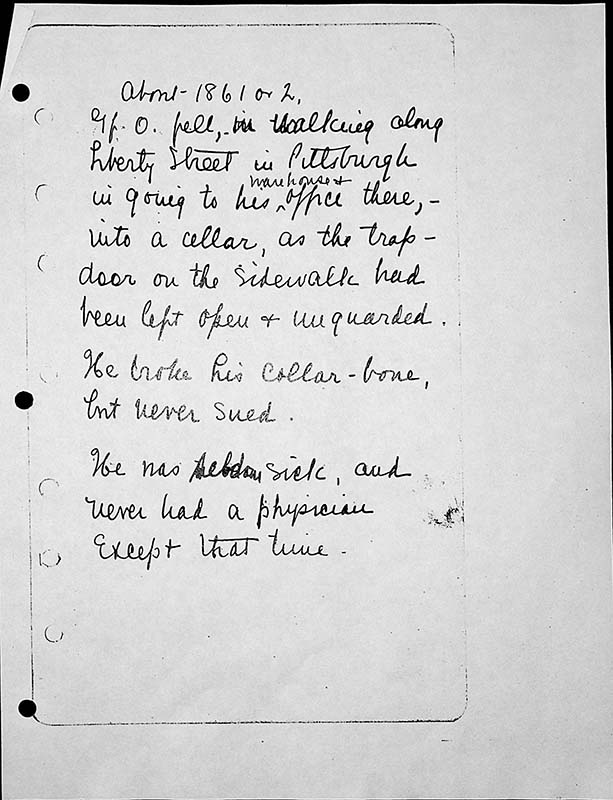 About - 1861 or 2,
Gf. O. fell, in walking along
Liberty Street in Pittsburgh
warehouse +
in going to his office there, -
into a cellar, as the trap -
door on the sidewalk had
been left open + unguarded.
He broke his collar-bone,
but never sued.
He was seldom sick, and
never had a physician
Except that time.